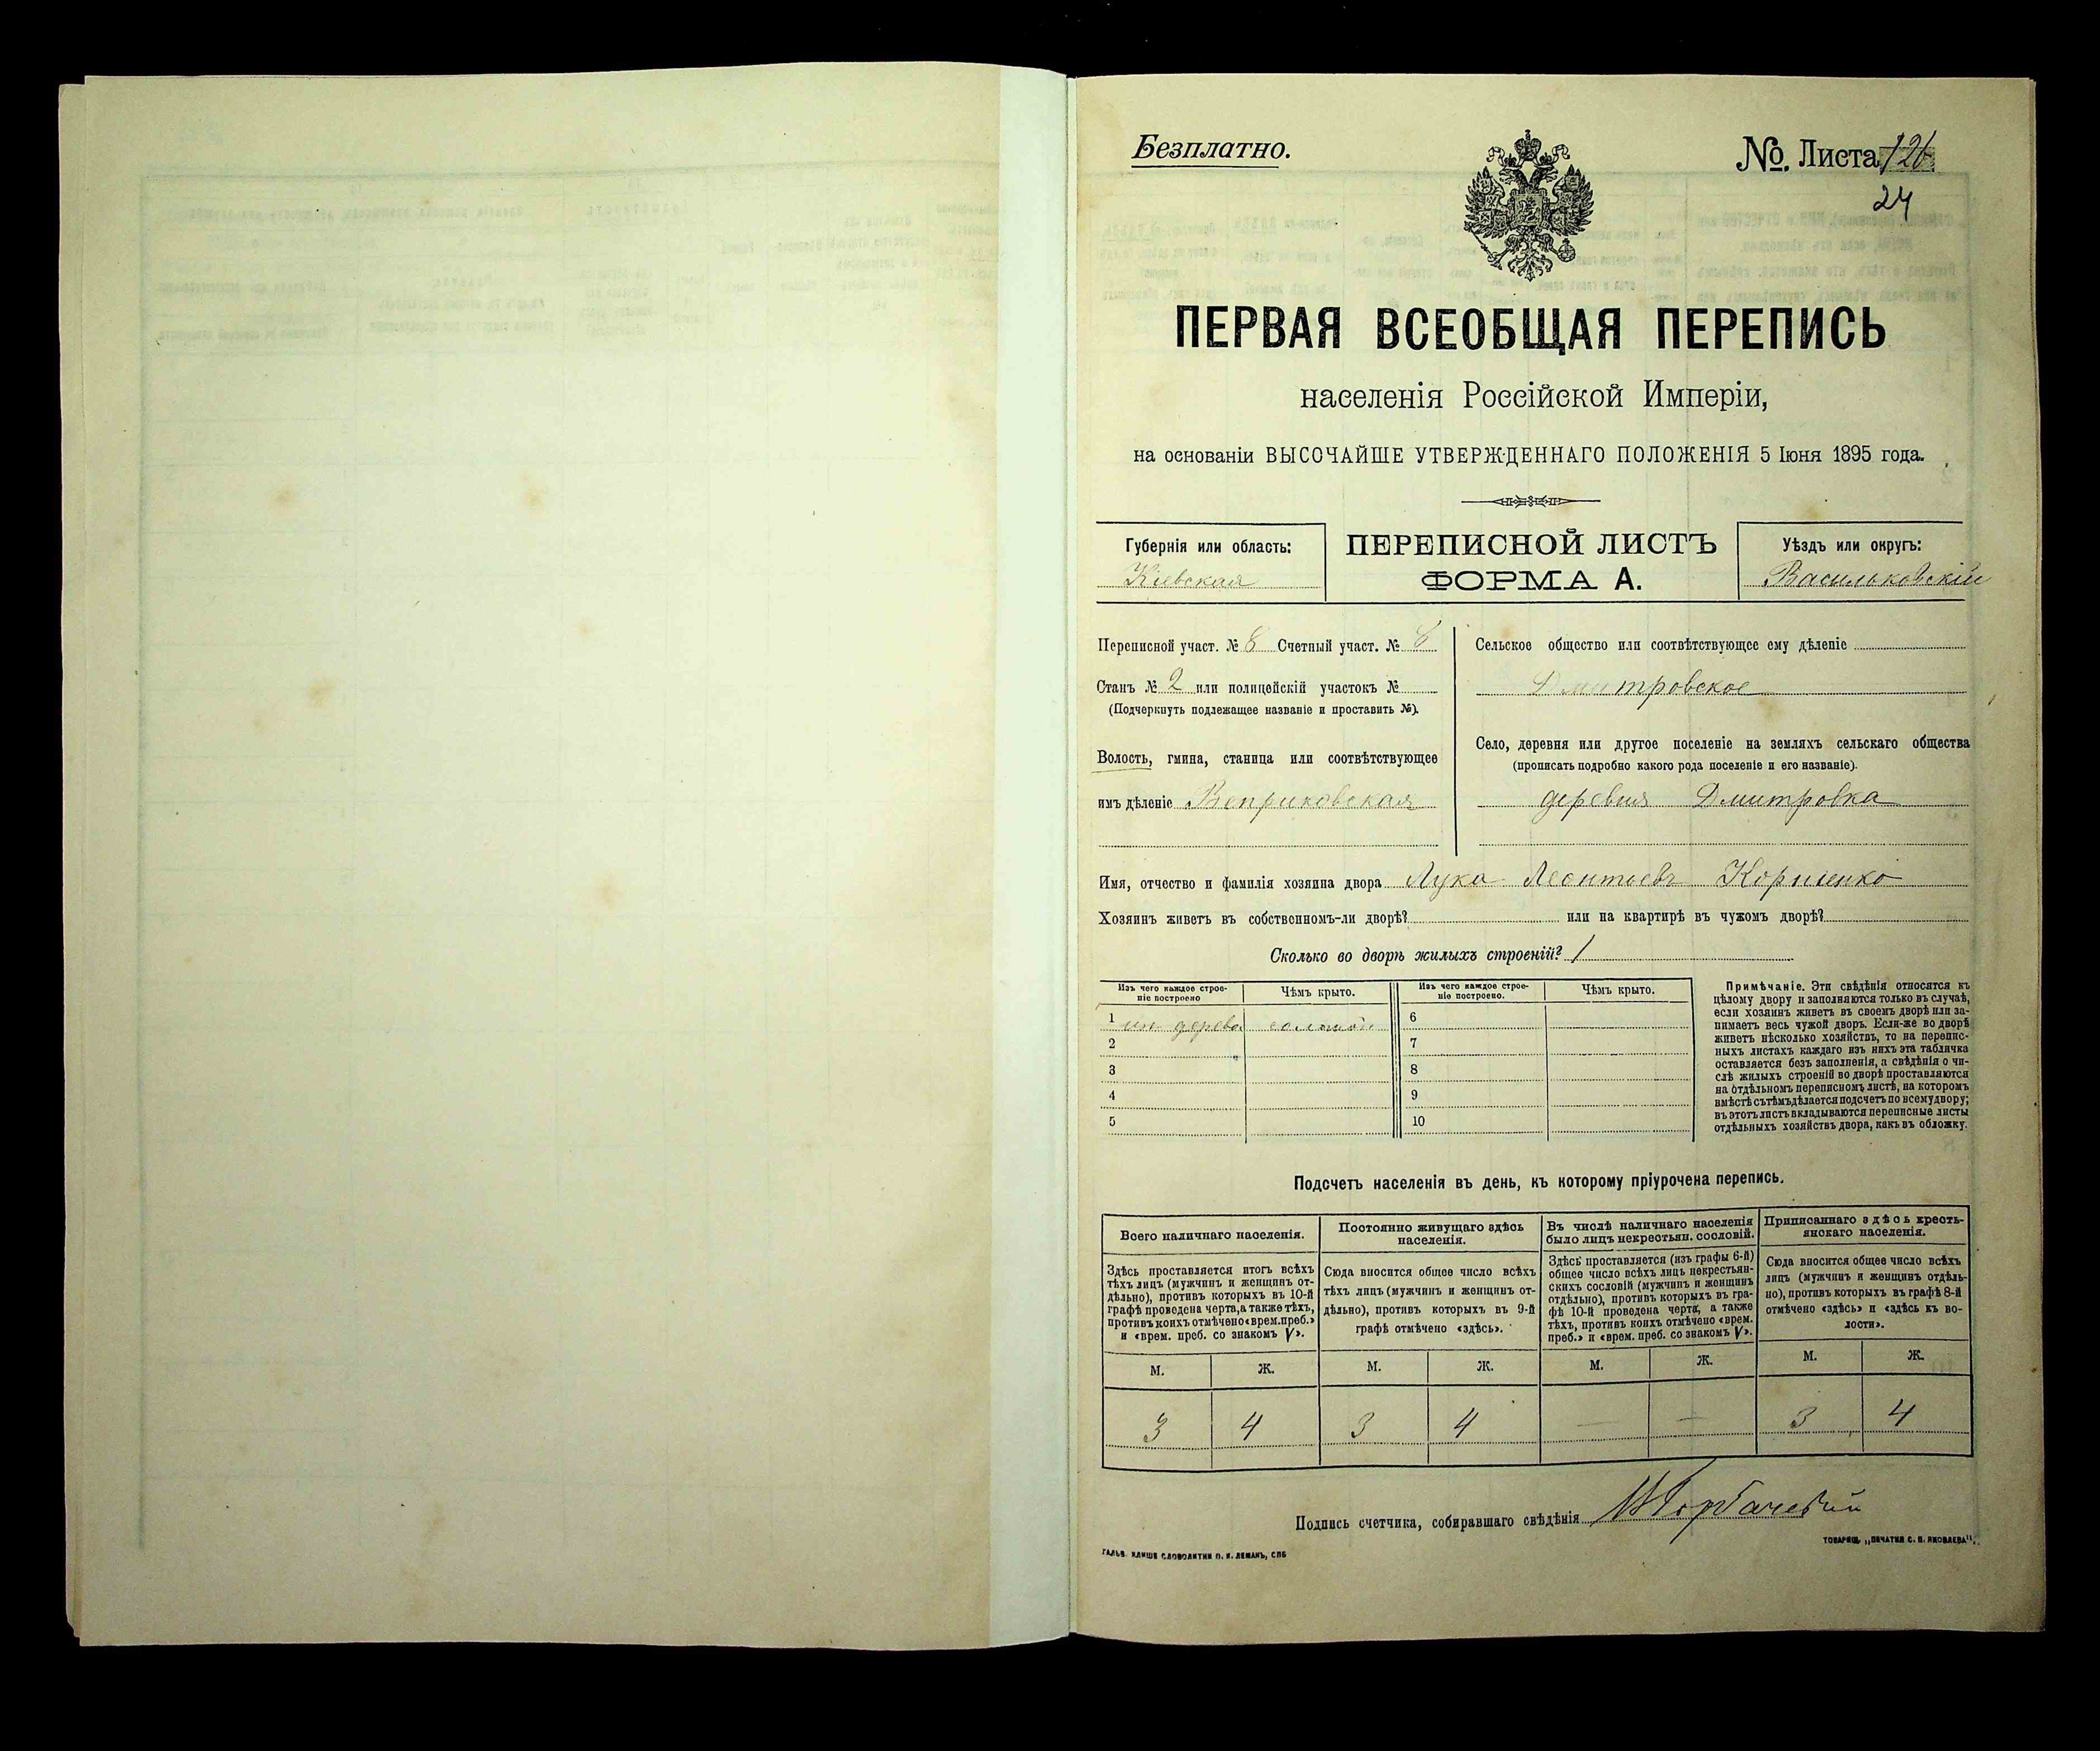 Безплатно.
№. Листа 126
24
ПЕРВАЯ ВСЕОБЩАЯ ПЕРЕПИСЬ
населенія Россійской Имперіи,
на основаніи ВЫСОЧАЙШЕ УТВЕРЖДЕННАГО ПОЛОЖЕНІЯ 5 Іюня 1895 года.
Губернія или область:
Кіевская
ПЕРЕПИСНОЙ ЛИСТЪ
ФОРМА А.
Уѣздъ или округъ:
Васильковскій
Переписной участ. № 8 Счетный участ. № 6
Станъ № 2 или полицейскій участокъ №
(Подчеркнуть подлежащее названіе и проставить №).
Волость, гмина, станица или соотвѣтствующее
имъ дѣленіе Веприковская
Сельское общество или соотвѣтствующее ему дѣленіе
Дмитровское
Село, деревня или другое поселеніе на земляхъ сельскаго общества
(прописать подробно какого рода поселеніе и его названіе).
деревня Дмитровка
Имя, отчество и фамилія хозяина двора Лука Леонтьевъ Корніенко
Хозяинъ живетъ въ собственномъ-ли дворѣ? или на квартирѣ въ чужомъ дворѣ?
Сколько во дворѣ жилыхъ строеній? 1
Изъ чего каждое строе-
ніе построено
Чѣмъ крыто.
1 изъ дерева соломой
2
3
4
5
Изъ чего каждое строе-
ніе построено.
Чѣмъ крыто.
6
7
8
9
10
Примѣчаніе. Эти свѣдѣнія относятся къ
цѣлому двору и заполняются только въ случаѣ,
если хозяинъ живетъ въ своемъ дворѣ или за-
нимаетъ весь чужой дворъ. Если-же во дворѣ
живетъ нѣсколько хозяйствъ, то на перепис-
ныхъ листахъ каждаго изъ нихъ эта табличка
оставляется безъ заполненія, а свѣдѣнія о чи-
слѣ жилыхъ строеній во дворѣ проставляются
на отдѣльномъ переписномъ листѣ, на которомъ
вмѣстѣ съ тѣмъ дѣлается подсчетъ по всему двору;
въ этотъ листъ вкладываются переписные листы
отдѣльныхъ хозяйствъ двора, какъ въ обложку.
Подсчетъ населенія въ день, къ которому пріурочена перепись.
Всего наличнаго населенія.
Здѣсь проставляется итогъ всѣхъ
тѣхъ лицъ (мужчинъ и женщинъ от-
дѣльно), противъ которыхъ въ 10-й
графѣ проведена черта, а также тѣхъ,
противъ коихъ отмѣчено «врем. преб.»
и «врем. преб. со знакомъ V».
Постоянно живущаго здѣсь
населенія.
Сюда вносится общее число всѣхъ
тѣхъ лицъ (мужчинъ и женщинъ от-
дѣльно), противъ которыхъ въ 9-й
графѣ отмѣчено «здѣсь».
Въ числѣ наличнаго населенія
было лицъ некрестьян. сословій.
Здѣсь проставляется (изъ графы 6-й)
общее число всѣхъ лицъ некрестьян-
скихъ сословій (мужчинъ и женщинъ
отдѣльно), противъ которыхъ въ гра-
фѣ 10-й проведена черта, а также
тѣхъ, противъ коихъ отмѣчено «врем.
преб.» и «врем. преб. со знакомъ V».
Приписаннаго здѣсь кресть-
янскаго населенія.
Сюда вносится общее число всѣхъ
лицъ (мужчинъ и женщинъ отдѣль-
но), противъ которыхъ въ графѣ 8-й
отмѣчено «здѣсь» и «здѣсь къ во-
лости».
М. Ж. М. Ж. М. Ж. М. Ж.
3 4 3 4 — — 3 4
Подпись счетчика, собиравшаго свѣдѣнія
ГАЛЬВ. КЛИШЕ СЛОВОЛИТНИ О. И. ЛЕМАНЪ, СПБ
ТОВАРИЩ. „ПЕЧАТНЯ С. П. ЯКОВЛЕВА".